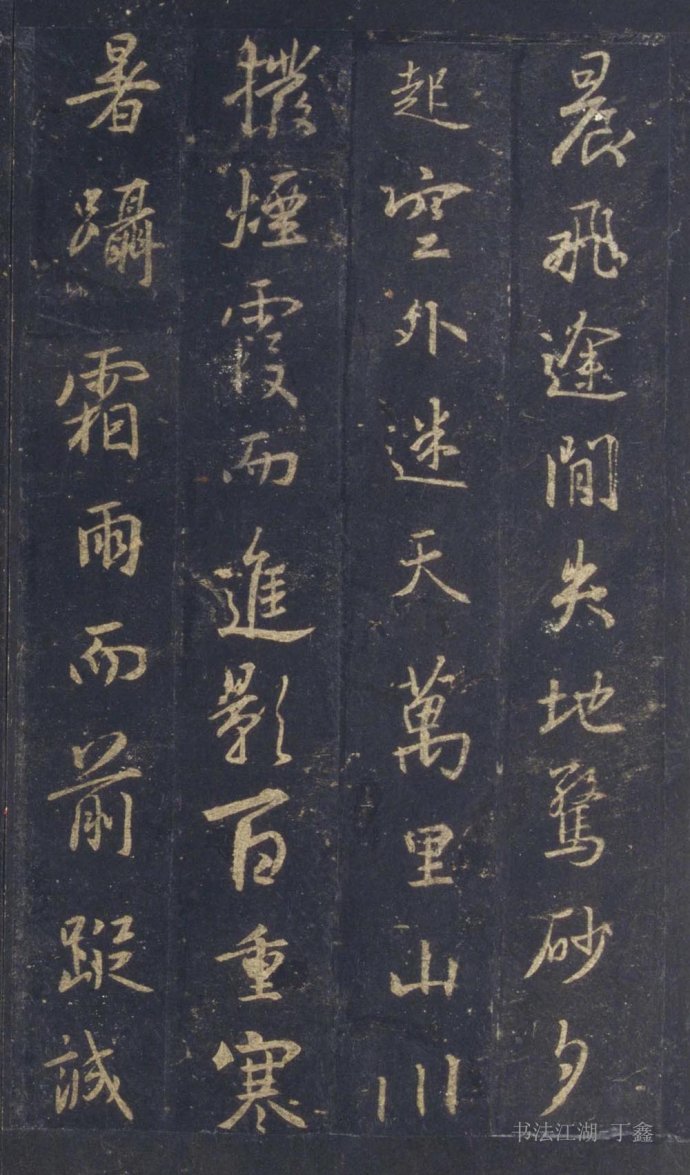 晨飛途閒失地驚砂夕
起空外迷天萬里山川
撥煙霞而進影百重寒
暑躡霜雨而前蹤誠
书法江湖-丁鑫